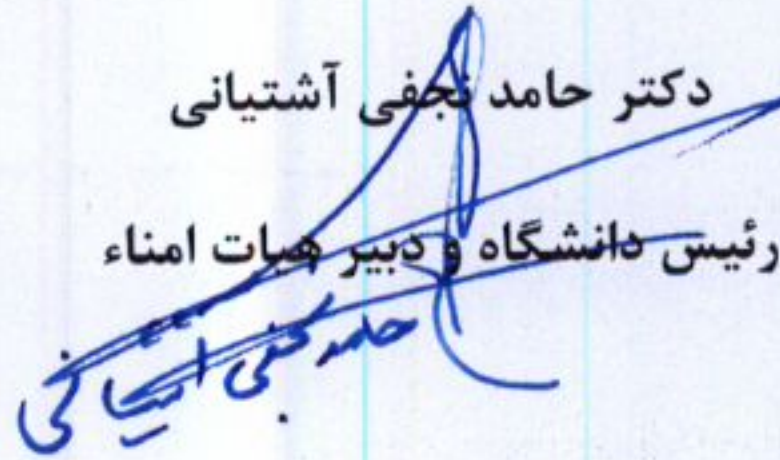 دکتر حامد نجفی آشتیانی
رئیس دانشگاه و دبیر هیات امناء
حامد نجفی آشتیانی